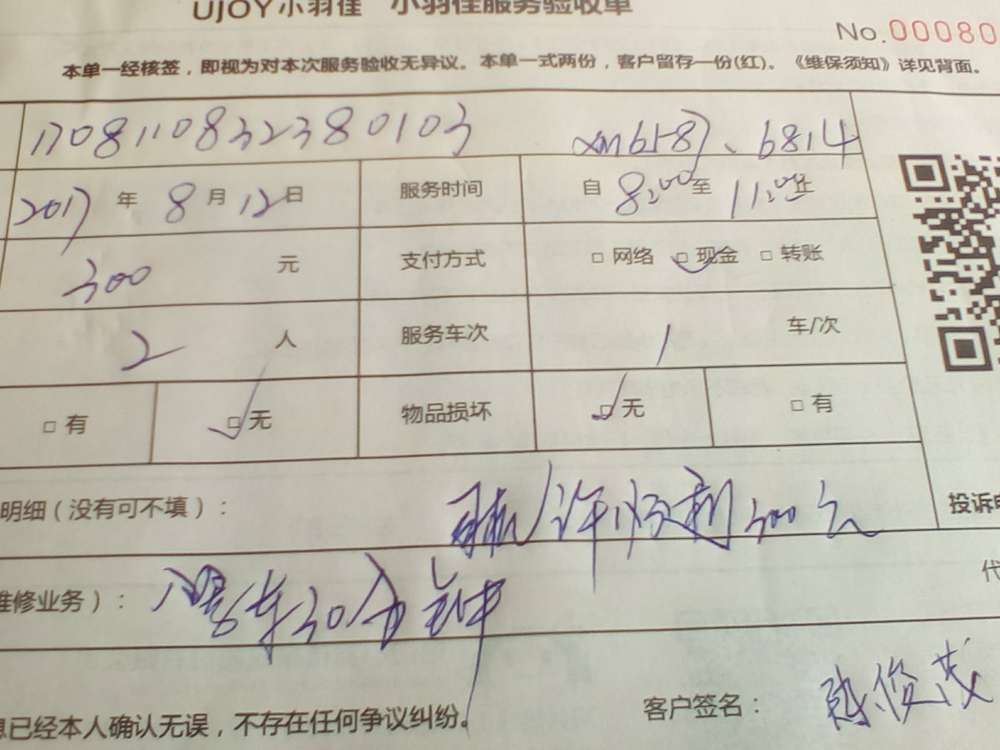 UJOY小羽佳 小羽佳服务验收单
No.00080
本单一经核签，即视为对本次服务验收无异议。本单一式两份，客户留存一份(红)。《维保须知》详见背面。
1708110832380103 6587、6814
2017年8月12日 服务时间 自8:00至11:00止
300元 支付方式 □网络 □现金 □转账
2人 服务车次 1车/次
□有 □无 物品损坏 □无 □有
明细（没有可不填）： 司机 许顺利300元
投诉
维修业务）： 30分钟
代
息已经本人确认无误，不存在任何争议纠纷。 客户签名： 俊茂